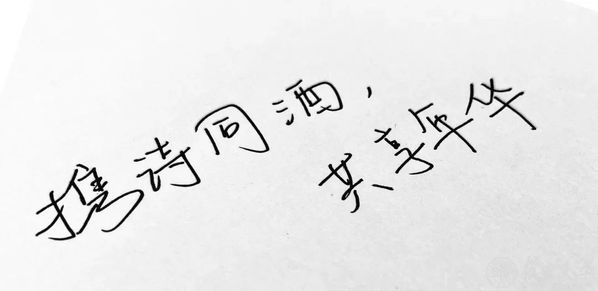 携诗同酒，
共享年华